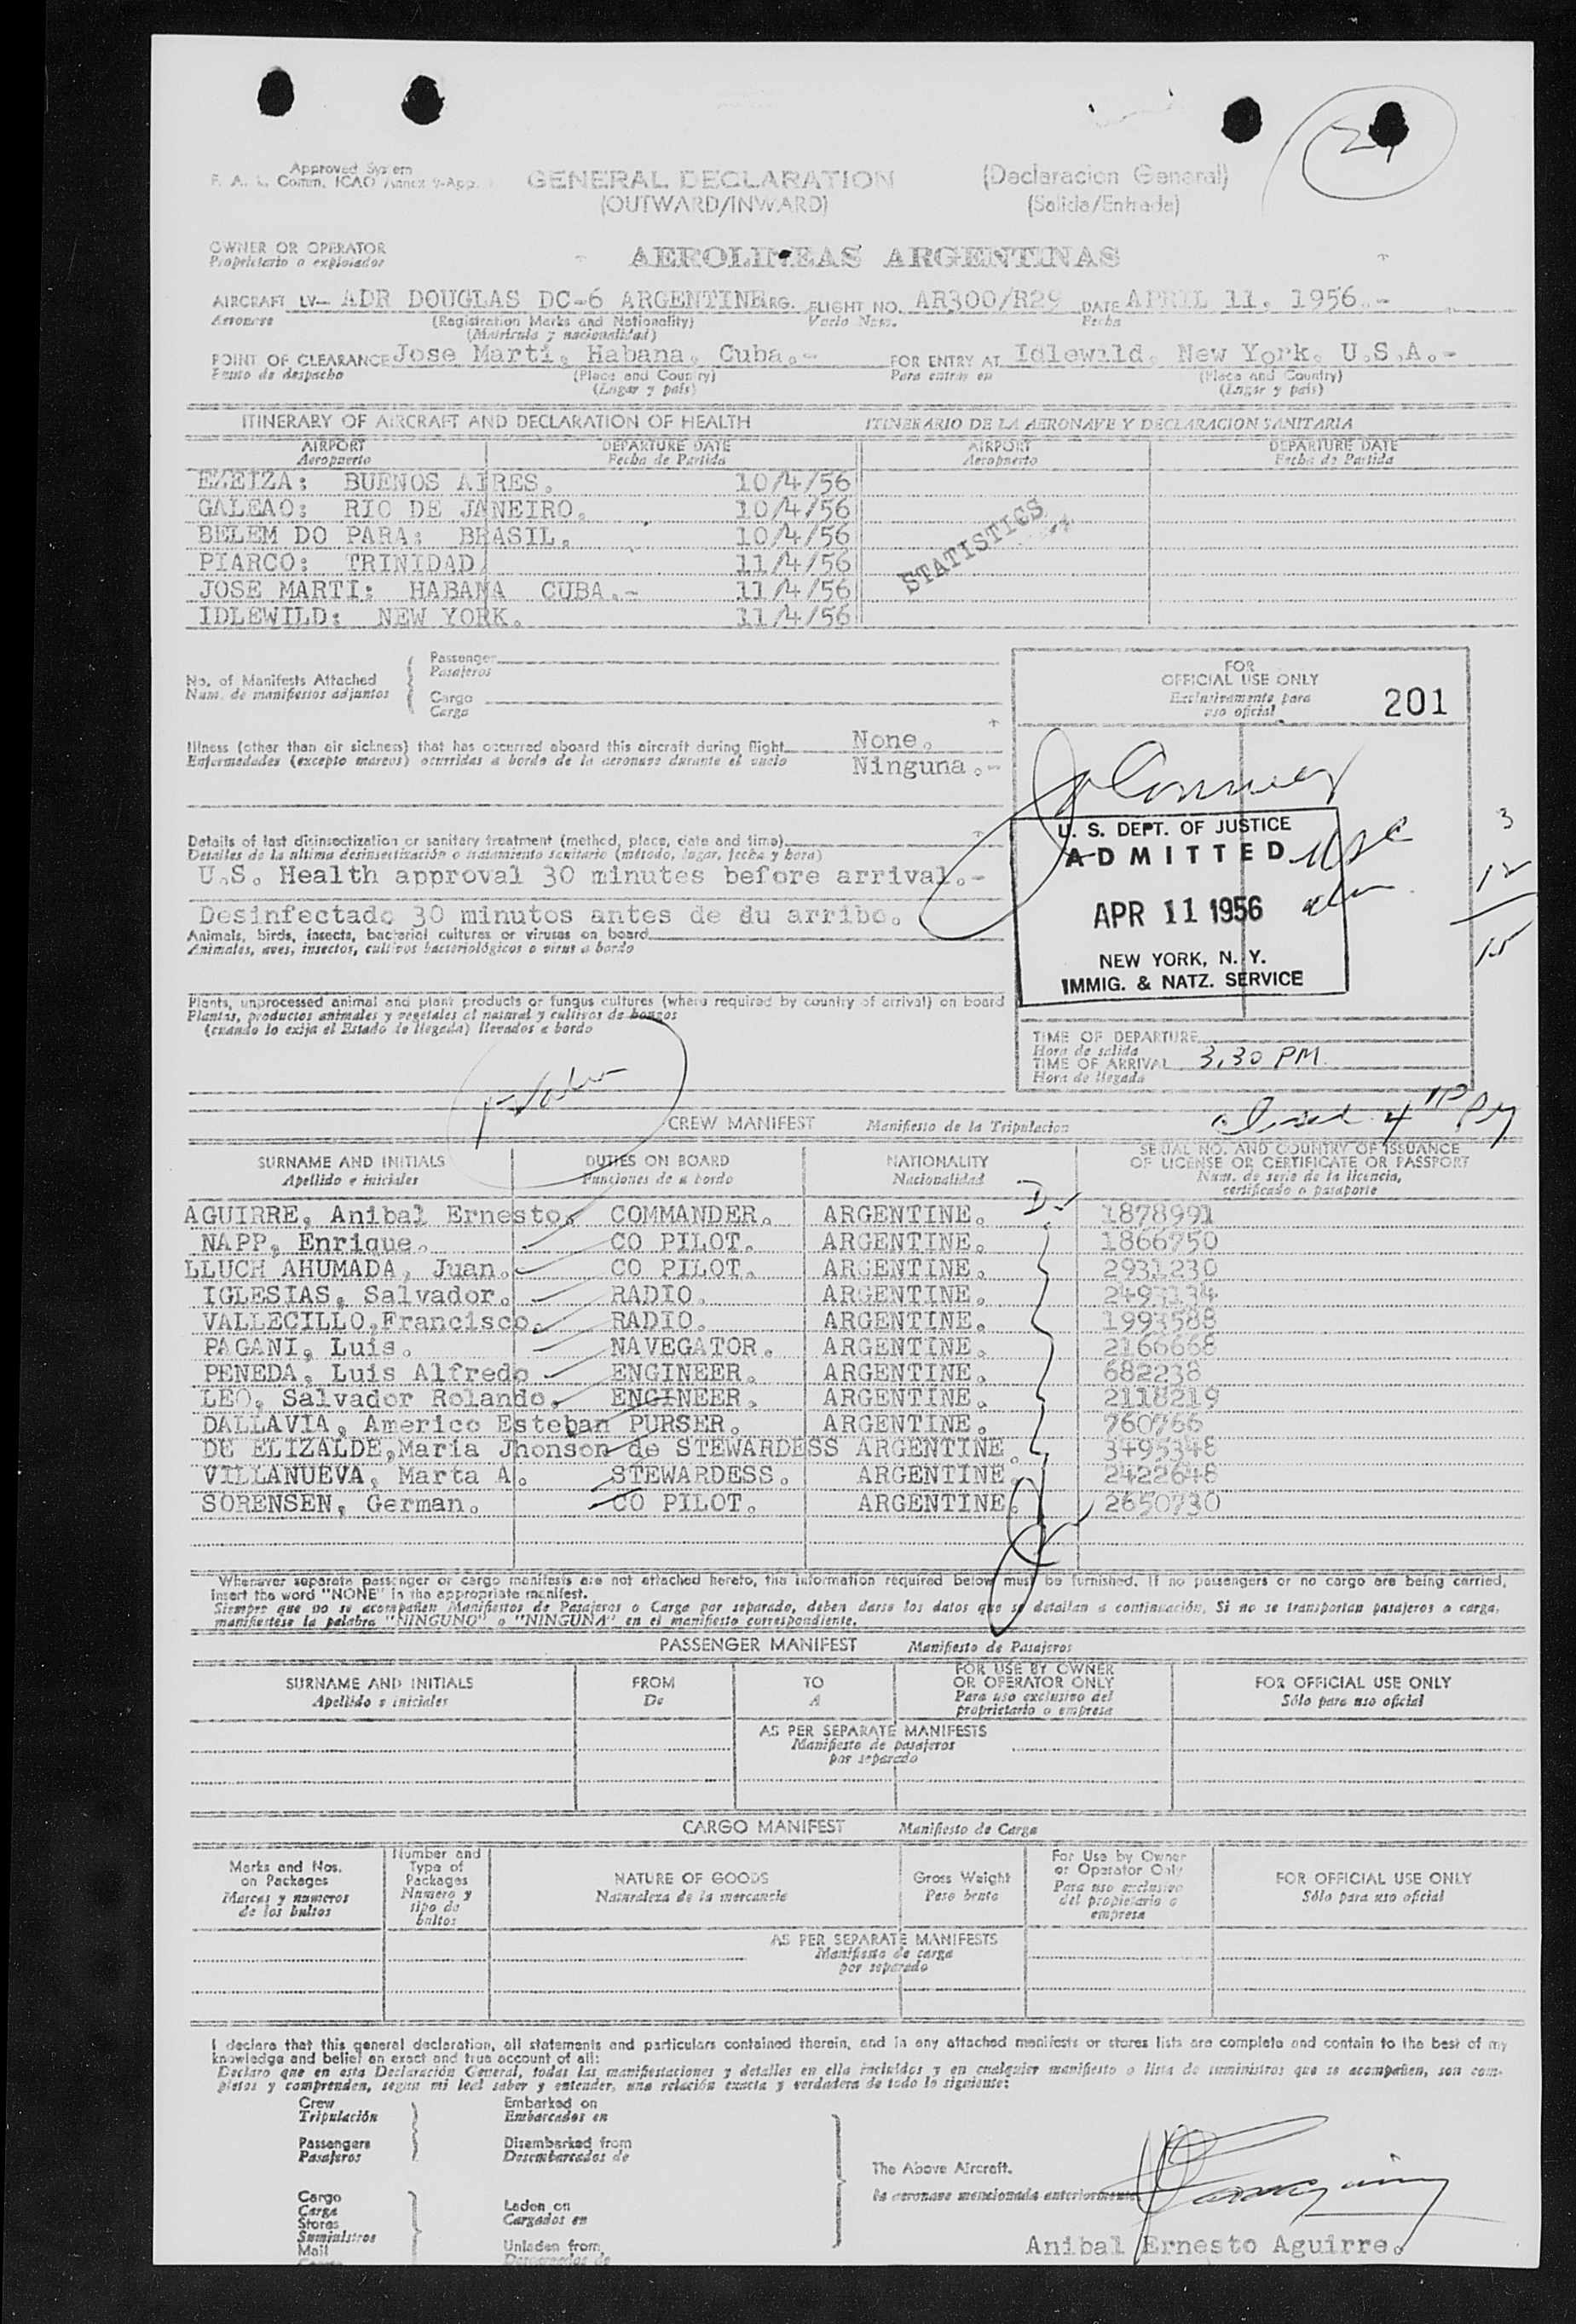 Approved System
F. A. L. Comm. ICAO Annex 9-App.
GENERAL DECLARATION (Declaracion General)
(OUTWARD/INWARD) (Salida/Entrada)
OWNER OR OPERATOR
Propietario o explotador
AEROLINEAS ARGENTINAS
AIRCRAFT LV- ADR DOUGLAS DC-6 ARGENTINE ARG. FLIGHT NO. AR300/R29 DATE APRIL 11. 1956.-
Aeronave (Registration Marks and Nationality) Vuelo Num. Fecha
(Matricula y nacionalidad)
POINT OF CLEARANCE Jose Marti, Habana, Cuba.- FOR ENTRY AT Idlewild, New York. U.S.A.-
Punto de despacho (Place and Country) Para entrar en (Place and Country)
(Lugar y pais) (Lugar y pais)
ITINERARY OF AIRCRAFT AND DECLARATION OF HEALTH ITINERARIO DE LA AERONAVE Y DECLARACION SANITARIA
AIRPORT DEPARTURE DATE AIRPORT DEPARTURE DATE
Aeropuerto Fecha de Partida Aeropuerto Fecha de Partida
EZEIZA: BUENOS AIRES. 10/4/56
GALEAO: RIO DE JANEIRO. 10/4/56
BELEM DO PARA: BRASIL. 10/4/56
PIARCO: TRINIDAD 11/4/56
JOSE MARTI: HABANA CUBA.- 11/4/56
IDLEWILD: NEW YORK. 11/4/56
STATISTICS
No. of Manifests Attached
Num. de manifiestos adjuntos
Passenger
Pasajeros
Cargo
Carga
FOR
OFFICIAL USE ONLY
Exclusivamente para
uso oficial
201
Illness (other than air sickness) that has occurred aboard this aircraft during flight None.
Enfermedades (excepto mareos) ocurridas a bordo de la aeronave durante el vuelo Ninguna.-
Details of last disinsectization or sanitary treatment (method, place, date and time)
Detalles de la ultima desinsectización o tratamiento sanitario (método, lugar, fecha y hora)
U.S. Health approval 30 minutes before arrival.-
Desinfectado 30 minutos antes de du arribo.
Animals, birds, insects, bacterial cultures or viruses on board
Animales, aves, insectos, cultivos bacteriológicos o virus a bordo
U. S. DEPT. OF JUSTICE
ADMITTED
APR 11 1956
NEW YORK, N. Y.
IMMIG. & NATZ. SERVICE
3
12
15
Plants, unprocessed animal and plant products or fungus cultures (where required by country of arrival) on board
Plantas, productos animales y vegetales al natural y cultivos de hongos
(cuando lo exija el Estado de llegada) llevados a bordo
TIME OF DEPARTURE
Hora de salida
TIME OF ARRIVAL 3.30 PM.
Hora de llegada
CREW MANIFEST Manifiesto de la Tripulacion
SURNAME AND INITIALS DUTIES ON BOARD NATIONALITY SERIAL NO. AND COUNTRY OF ISSUANCE
OF LICENSE OR CERTIFICATE OR PASSPORT
Apellido e iniciales Funciones de a bordo Nacionalidad Num. de serie de la licencia,
certificado o pasaporte
AGUIRRE, Anibal Ernesto. COMMANDER. ARGENTINE. 1878991
NAPP, Enrique. CO PILOT. ARGENTINE. 1866750
LLUCH AHUMADA, Juan. CO PILOT. ARGENTINE. 2931230
IGLESIAS, Salvador. RADIO. ARGENTINE. 2493134
VALLECILLO,Francisco. RADIO. ARGENTINE. 1993588
PAGANI, Luis. NAVEGATOR. ARGENTINE. 2166668
PENEDA, Luis Alfredo ENGINEER. ARGENTINE. 682238
LEO, Salvador Rolando. ENGINEER. ARGENTINE. 2118219
DALLAVIA, Americo Esteban PURSER. ARGENTINE. 760766
DE ELIZALDE,Maria Jhonson de STEWARDESS ARGENTINE. 3495348
VILLANUEVA, Marta A. STEWARDESS. ARGENTINE. 2422648
SORENSEN, German. CO PILOT. ARGENTINE. 2650730
Whenever separate passenger or cargo manifests are not attached hereto, the information required below must be furnished. If no passengers or no cargo are being carried,
insert the word "NONE" in the appropriate manifest.
Siempre que no se acompañen Manifiestos de Pasajeros o Carga por separado, deben darse los datos que se detallan a continuación. Si no se transportan pasajeros o carga,
manifiestese la palabra "NINGUNO" o "NINGUNA" en el manifiesto correspondiente.
PASSENGER MANIFEST Manifiesto de Pasajeros
SURNAME AND INITIALS FROM TO FOR USE BY OWNER
OR OPERATOR ONLY FOR OFFICIAL USE ONLY
Apellido e iniciales De A Para uso exclusivo del
proprietario o empresa Sólo para uso oficial
AS PER SEPARATE MANIFESTS
Manifiesto de pasajeros
por separado
CARGO MANIFEST Manifiesto de Carga
Marks and Nos.
on Packages
Marcas y numeros
de los bultos
Number and
Type of
Packages
Numero y
tipo de
bultos
NATURE OF GOODS
Naturaleza de la mercancia
Gross Weight
Peso bruto
For Use by Owner
or Operator Only
Para uso exclusivo
del propietario o
empresa
FOR OFFICIAL USE ONLY
Sólo para uso oficial
AS PER SEPARATE MANIFESTS
Manifiesto de carga
por separado
I declare that this general declaration, all statements and particulars contained therein, and in any attached manifests or stores lists are complete and contain to the best of my
knowledge and belief an exact and true account of all:
Declaro que en esta Declaración General, todas las manifestaciones y detalles en ella incluidos y en cualquier manifiesto o lista de suministros que se acompañen, son com-
pletos y comprenden, segun mi leal saber y entender, una relación exacta y verdadera de todo lo siguiente:
Crew
Tripulación
Embarked on
Embarcados en
Passengers
Pasajeros
Disembarked from
Desembarcados de
The Above Aircraft.
la aeronave mencionada anteriormente
Cargo
Carga
Stores
Suministros
Mail
Laden on
Cargados en
Unladen from
Descargados de
Anibal Ernesto Aguirre.